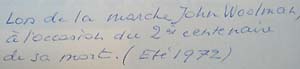 Lors de la marche John Woolman,
à l'occasion du 2ème centenaire
de sa mort. (Eté 1972)